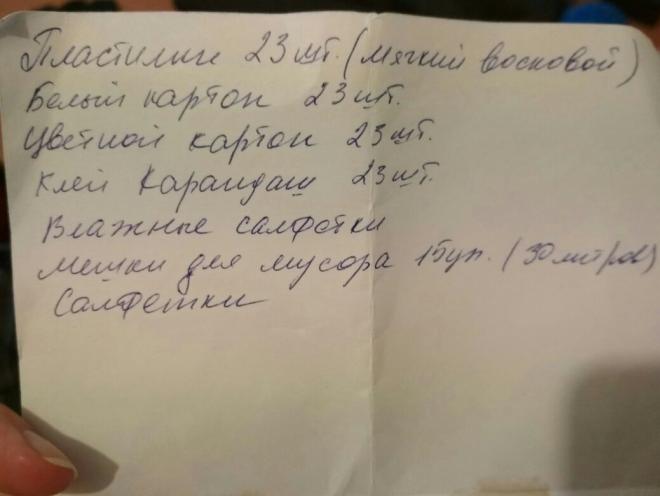 Пластилин 23 шт. (мягкий восковой)
Белый картон 23 шт.
Цветной картон 23 шт.
Клей Карандаш 23 шт.
Влажные салфетки
мешки для мусора 15уп. (30 литров)
Салфетки